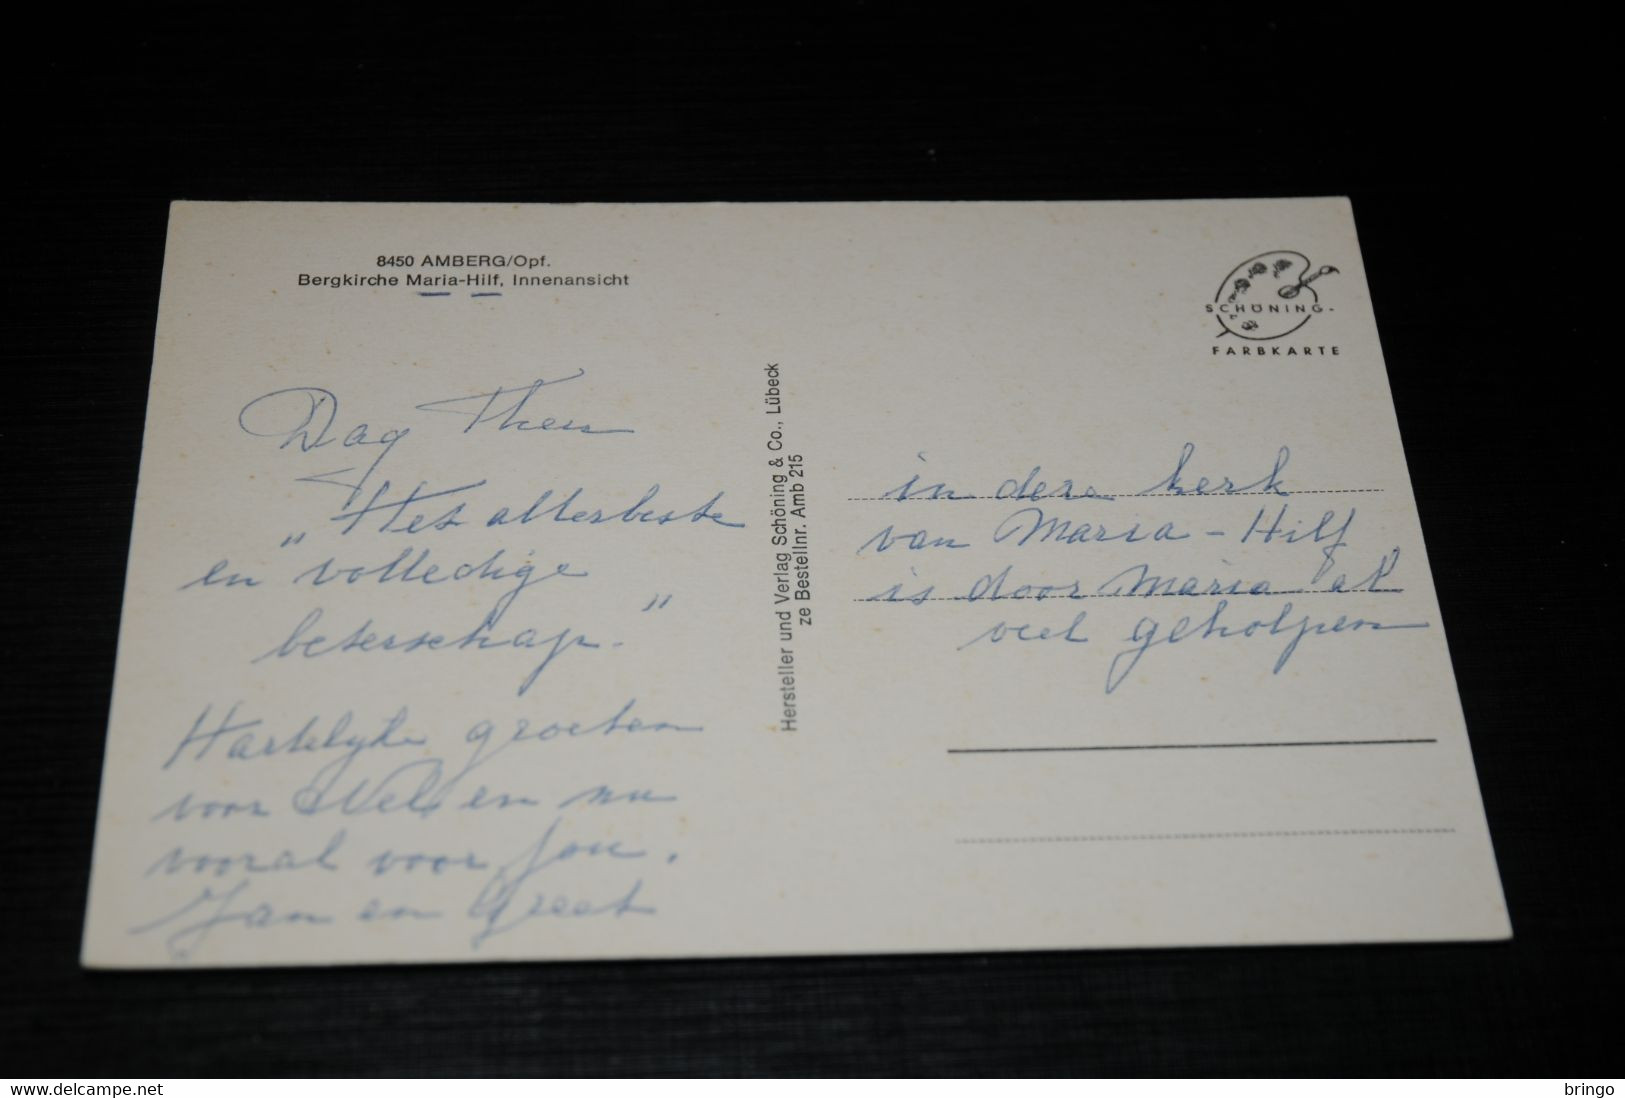 8450 AMBERG/Opf.
Bergkirche Maria-Hilf, Innenansicht
SCHÖNING-
FARBKARTE
Dag Theu
"Het allerbeste
en volledige
beterschap."
Hartelyke groeten
voor Nel en nu
vooral voor jou.
Jan en Greet
Hersteller und Verlag Schöning & Co., Lübeck
ze Bestellnr. Amb 215
in deze kerk
van Maria-Hilf
is door Maria al
veel geholpen
delcampe.net
bringo